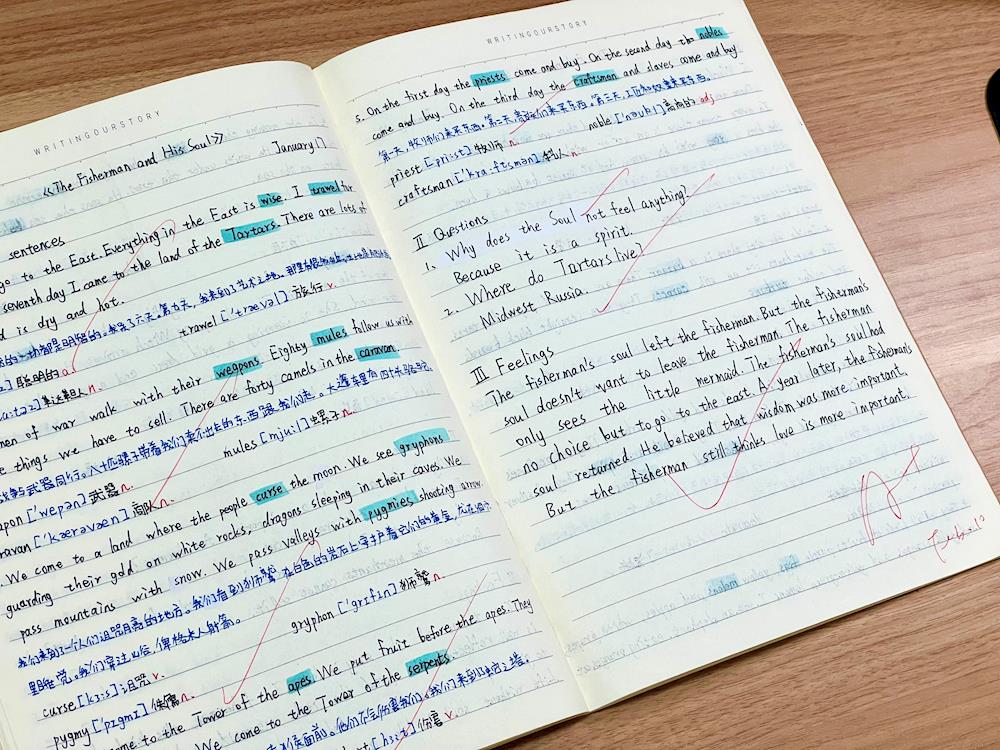 WRITINGOURSTORY
《The Fisherman and His Soul》
January 17
sentences
go to the East. Everything in the East is wise. I travel for
seventh day I came to the land of the Tartars. There are lots of
d is dry and hot.
travel ['trævəl] 旅行 v.
聪明的 a
n.
men of war walk with their weapons. Eighty mules follow us with
e things we have to sell. There are forty camels in the caravan.
mules [mju:l] 骡子 n.
apon ['wepən] 武器 n.
ravan ['kærəvæn] n.
We come to a land where the people curse the moon. We see gryphons
guarding their gold on white rocks, dragons sleeping in their caves. We
pass mountains with snow. We pass valleys with pygmies shooting arrow.
gryphon ['grɪfɪn] 狮鹫 n.
curse [kɜ:s] 诅咒 v.
pygmy ['pɪgmɪ] 侏儒 n.
ome to the Tower of the apes. We put fruit before the apes. They
We come to the Tower of the serpents.
[hɜ:t] 伤害 v.
WRITINGOURSTORY
5. On the first day the priests come and buy. On the second day the nobles
come and buy. On the third day the craftsman and slaves come and buy
第一天,牧师们来买东西。第二天,贵族们来买东西。第三天,工匠和奴隶来买东西。
priest [pri:st] 牧师 n. noble ['nəubl] 高尚的 adj
craftsman ['kra:ftsmən] 匠人 n.
II Questions
1. Why does the Soul not feel anything?
Because it is a spirit.
2. Where do Tartars live?
Midwest Russia.
III Feelings
The fisherman's soul left the fisherman. But the fisherman's
soul doesn't want to leave the fisherman. The fisherman
only sees the little mermaid. The fisherman's soul had
no choice but to go to the east. A year later, the fisherman's
soul returned. He believed that wisdom was more important.
But the fisherman still thinks love is more important.
A+